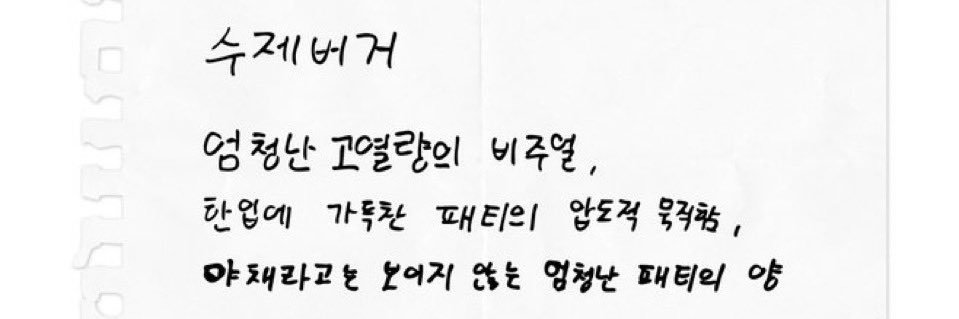 수제버거
엄청난 고열량의 비주얼,
한입에 가득찬 패티의 압도적 묵직함,
야채라고는 보이지 않는 엄청난 패티의 양